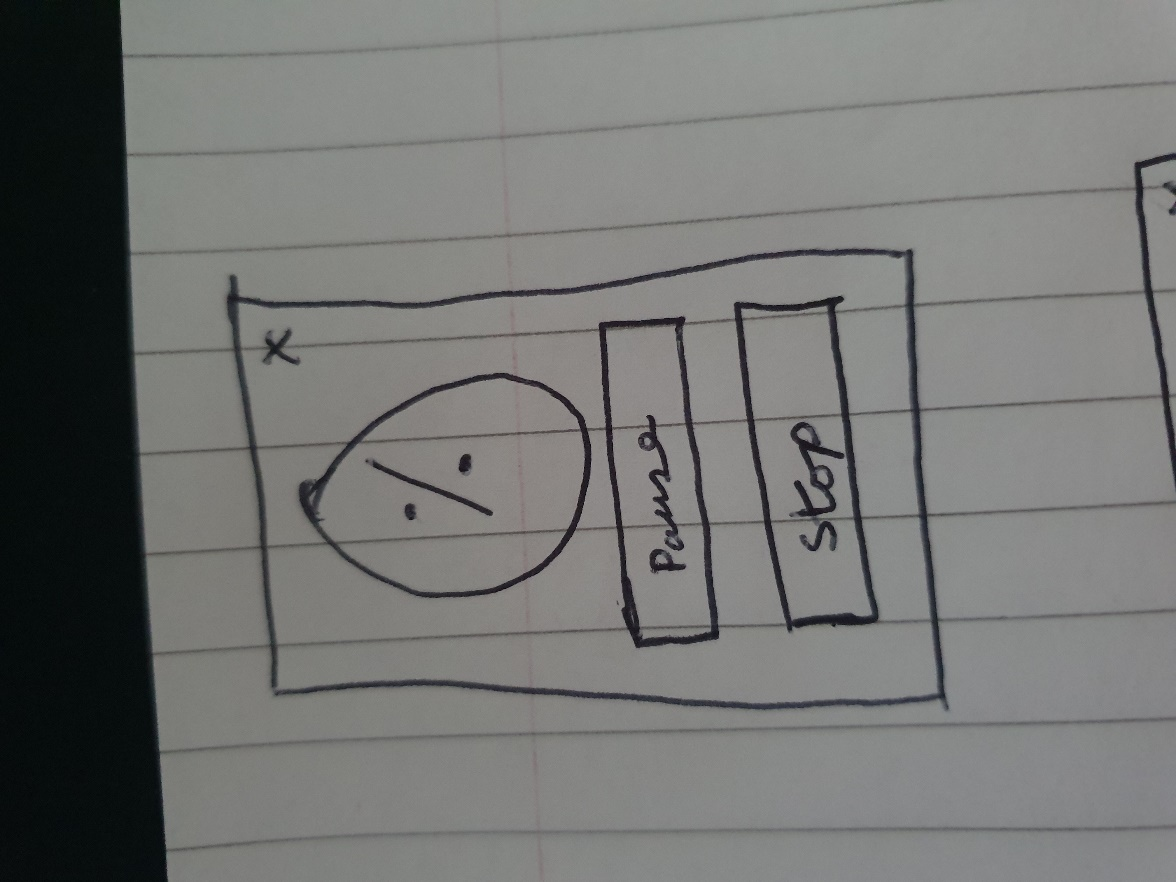 X
%
Pause
Stop